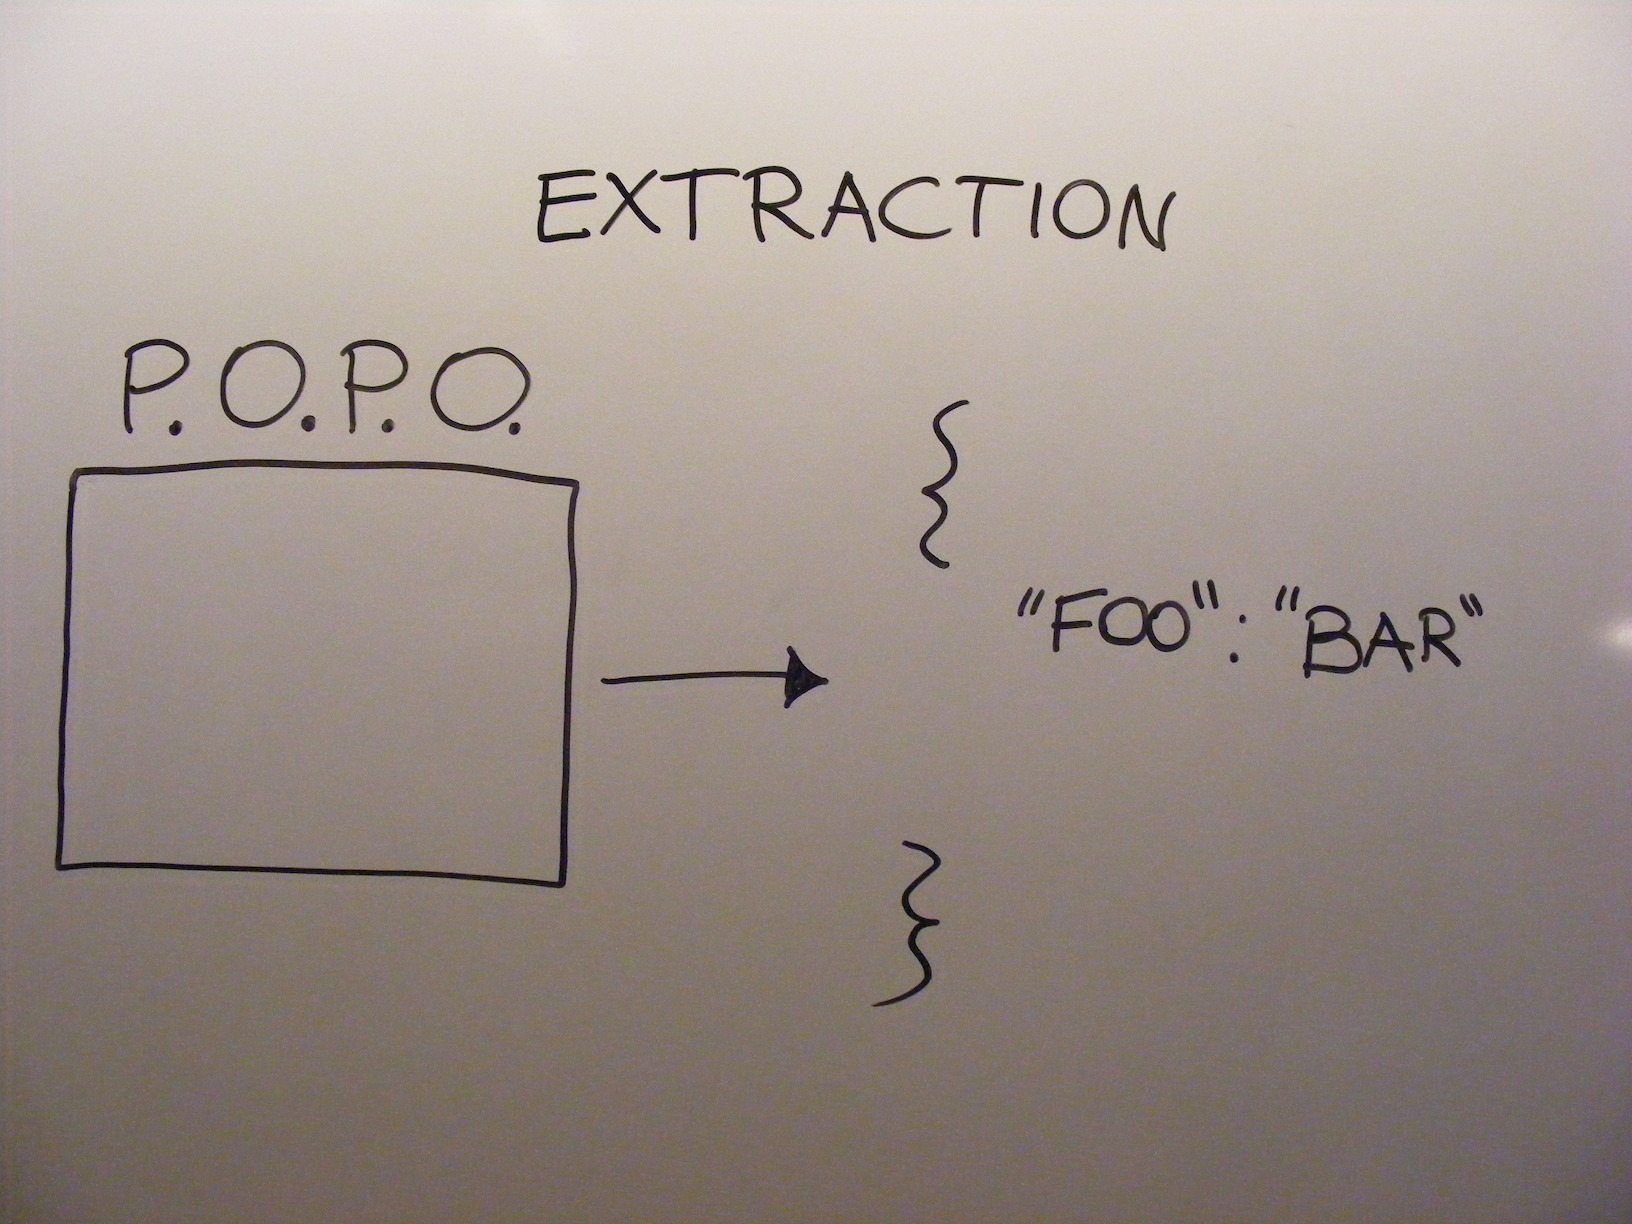 EXTRACTION
P.O.P.O.
{
"FOO": "BAR"
}